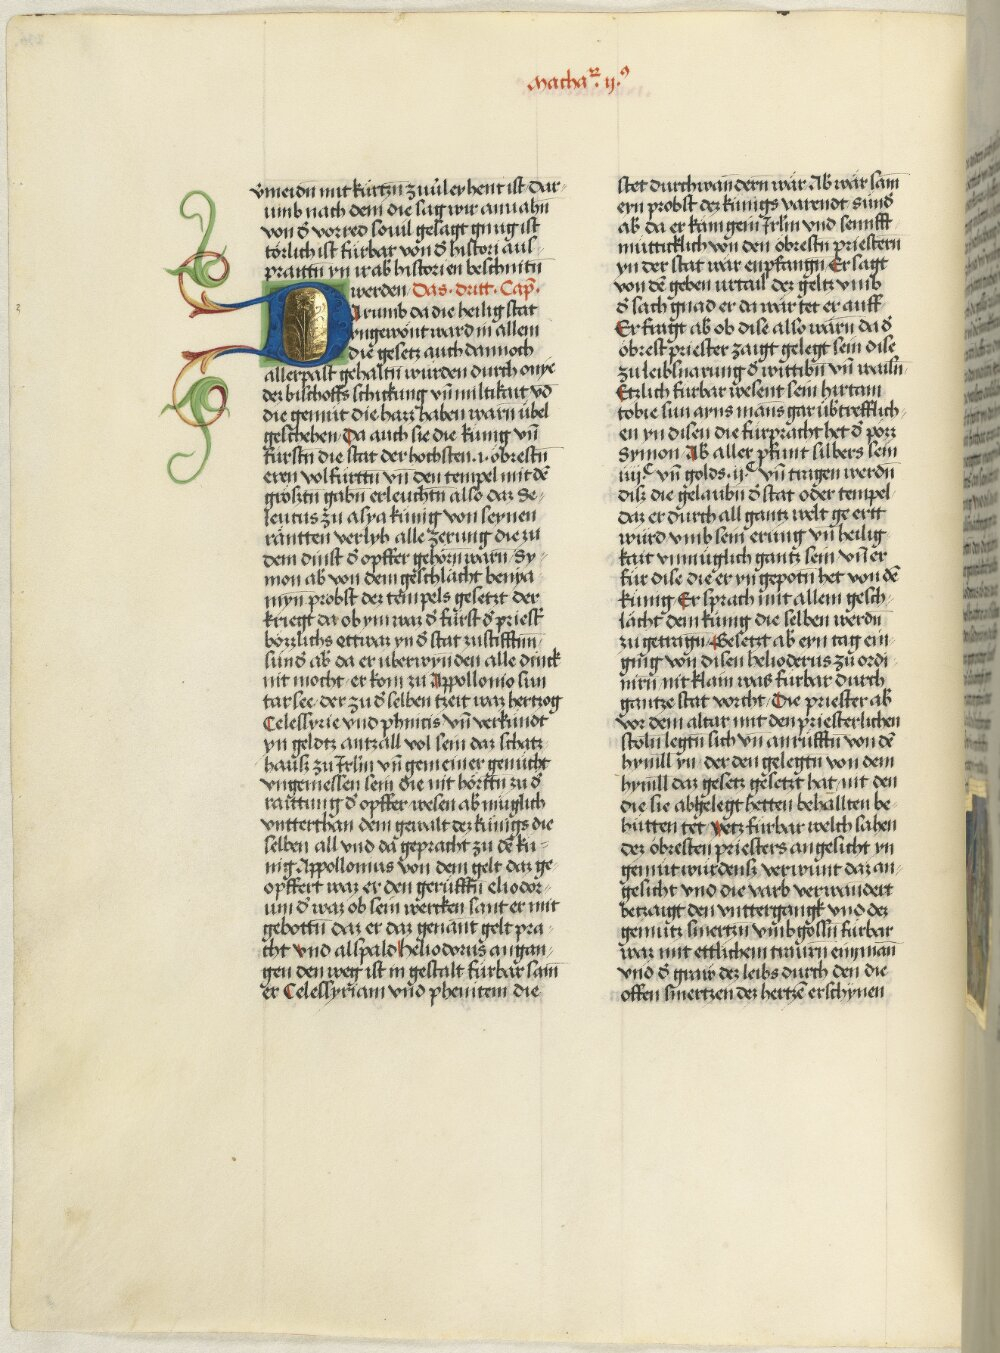 Machaꝝ. ij.⁹
vmeidn̄ mit kürtzn̄ zuuil eÿ hent ist dar-
umb nach dem die sag wir anuahn̄
von d̄ vorred souil gesagt gnug ist
törlich ist fürbar von d̄ histori aus-
praittn̄ yn ir ab historien beschnitn̄
werden. Das. dritt. Cap̄.
Darumb da die heilig stat
yngewont ward in allem
die gesetz auch dannoch
allerpast gehaltn̄ wurden durch onye
der bischoffs schickung vn̄ miltikait vō
die gemüt die harr haben warn übel
geschehen. Da auch sie die künig vn̄
fürstn̄ die stat der hochsten .i. obrestn̄
eren volfürttn̄ vn̄ den tempel mit dē
gröstn̄ gabn̄ erleuchtn̄ also daz Se-
leucus zu asya künig von seynen
räntten verlyh alle zerung die zu
dem dinst d̄ opffer gehörn̄ warn. Sy-
mon ab von dem geschlächt benia-
myn probst dez tempels gesetzt der
kriegt da ob ym war d̄ fürst d̄ priestr
bözzlichs ettwaz yn d̄ stat zustifftn̄
sünd ab da er überwynden alle dinck
nit mocht. er kom zu Appollonio sun
tarsee. der zu d̄ selben tzeit waz hertzog
Celessyrie vnd phinicis vn̄ verkündt
yn geldtz antzall vol sein daz schatz-
hausz zu Jrlm̄ vn̄ gemeiner gemücht
vngemessen sein die nit hörttn̄ zu d̄
raittung d̄ opffer wesen ab müglich
vntterthan dem gewalt dez künigs die
selben all vnd da gepracht zu dē kü-
nig Appollonius von dem gelt daz ge-
opffert waz er den gerüfftn̄ eliodor-
um d̄ waz ob sein wercken sant er mit
gebottn̄ daz er daz genant gelt pra-
cht vnd alspald Heliodorus an gan-
gen den weg ist in gestalt fürbar sam
er Celessyriam vnd phenitem die
stet durchwandern wär. Ab wär sam
eyn probst dez künigs varendt sünd
ab da er kam gein Jrlm̄ vnd sennfft-
müttiklich von den öbrestn̄ priestern
yn der stat wär enpfangn̄. Er sagt
von dē geben vrtail dez geltz vmb
d̄ sach gnad er da wär tet er auff
Er fragt ab ob dise also wärn da d̄
öbrest priester zaigt gelegt sein dise
zu leibsnarung d̄ wittibn̄ vn̄ waisn̄
Etzlich fürbar wesent sein hircani
tobie sun ayns mans gar übtrefflich-
en yn disen die fürpracht het d̄ pözz
Symon. Ab aller pfunt silbers sein
iiij.ᶜ vn̄ golds .ij.ᶜ vn̄ tragen werdn̄
disz die gelaubn̄ d̄ stat oder tempel
daz er durch all gantz welt ge ertt
würd vmb sein erüng vn̄ heilig-
kait vnmüglich gantz sein vn̄ er
für dise die er yn gepotn̄ het von dē
künig. Er sprach mit allem gesch-
lächt dem künig die selben werdn̄
zu getragn̄. Gesetzt ab eyn tag ein-
ging von disen heliodorus zu ordi-
nirn̄ nit klain waz fürbar durch
gantze stat vorcht. Die priester ab
vor dem altar mit den priesterlichen
stöln̄ legtn̄ sich vn̄ anrüfftn̄ von dē
hymll yn. der den gelegtn̄ von dem
hymll daz gesetz gesetzt hat. mit den
die sie abgelegt hetten behallten be-
hütten tet. yetz fürbar welch sahen
dez öbresten priesters angesicht yn
gemüt wurdensz verwunt daz an-
gesicht vnd die varb verwandert
betzaigt den vnttergangk vnd dez
gemütz smertzn̄ vmbgossn̄ fürbar
war mit ettlichem trawrn̄ eyn man
vnd d̄ graw dez leibs durch den die
offen smertzen dez hertzē erschynen